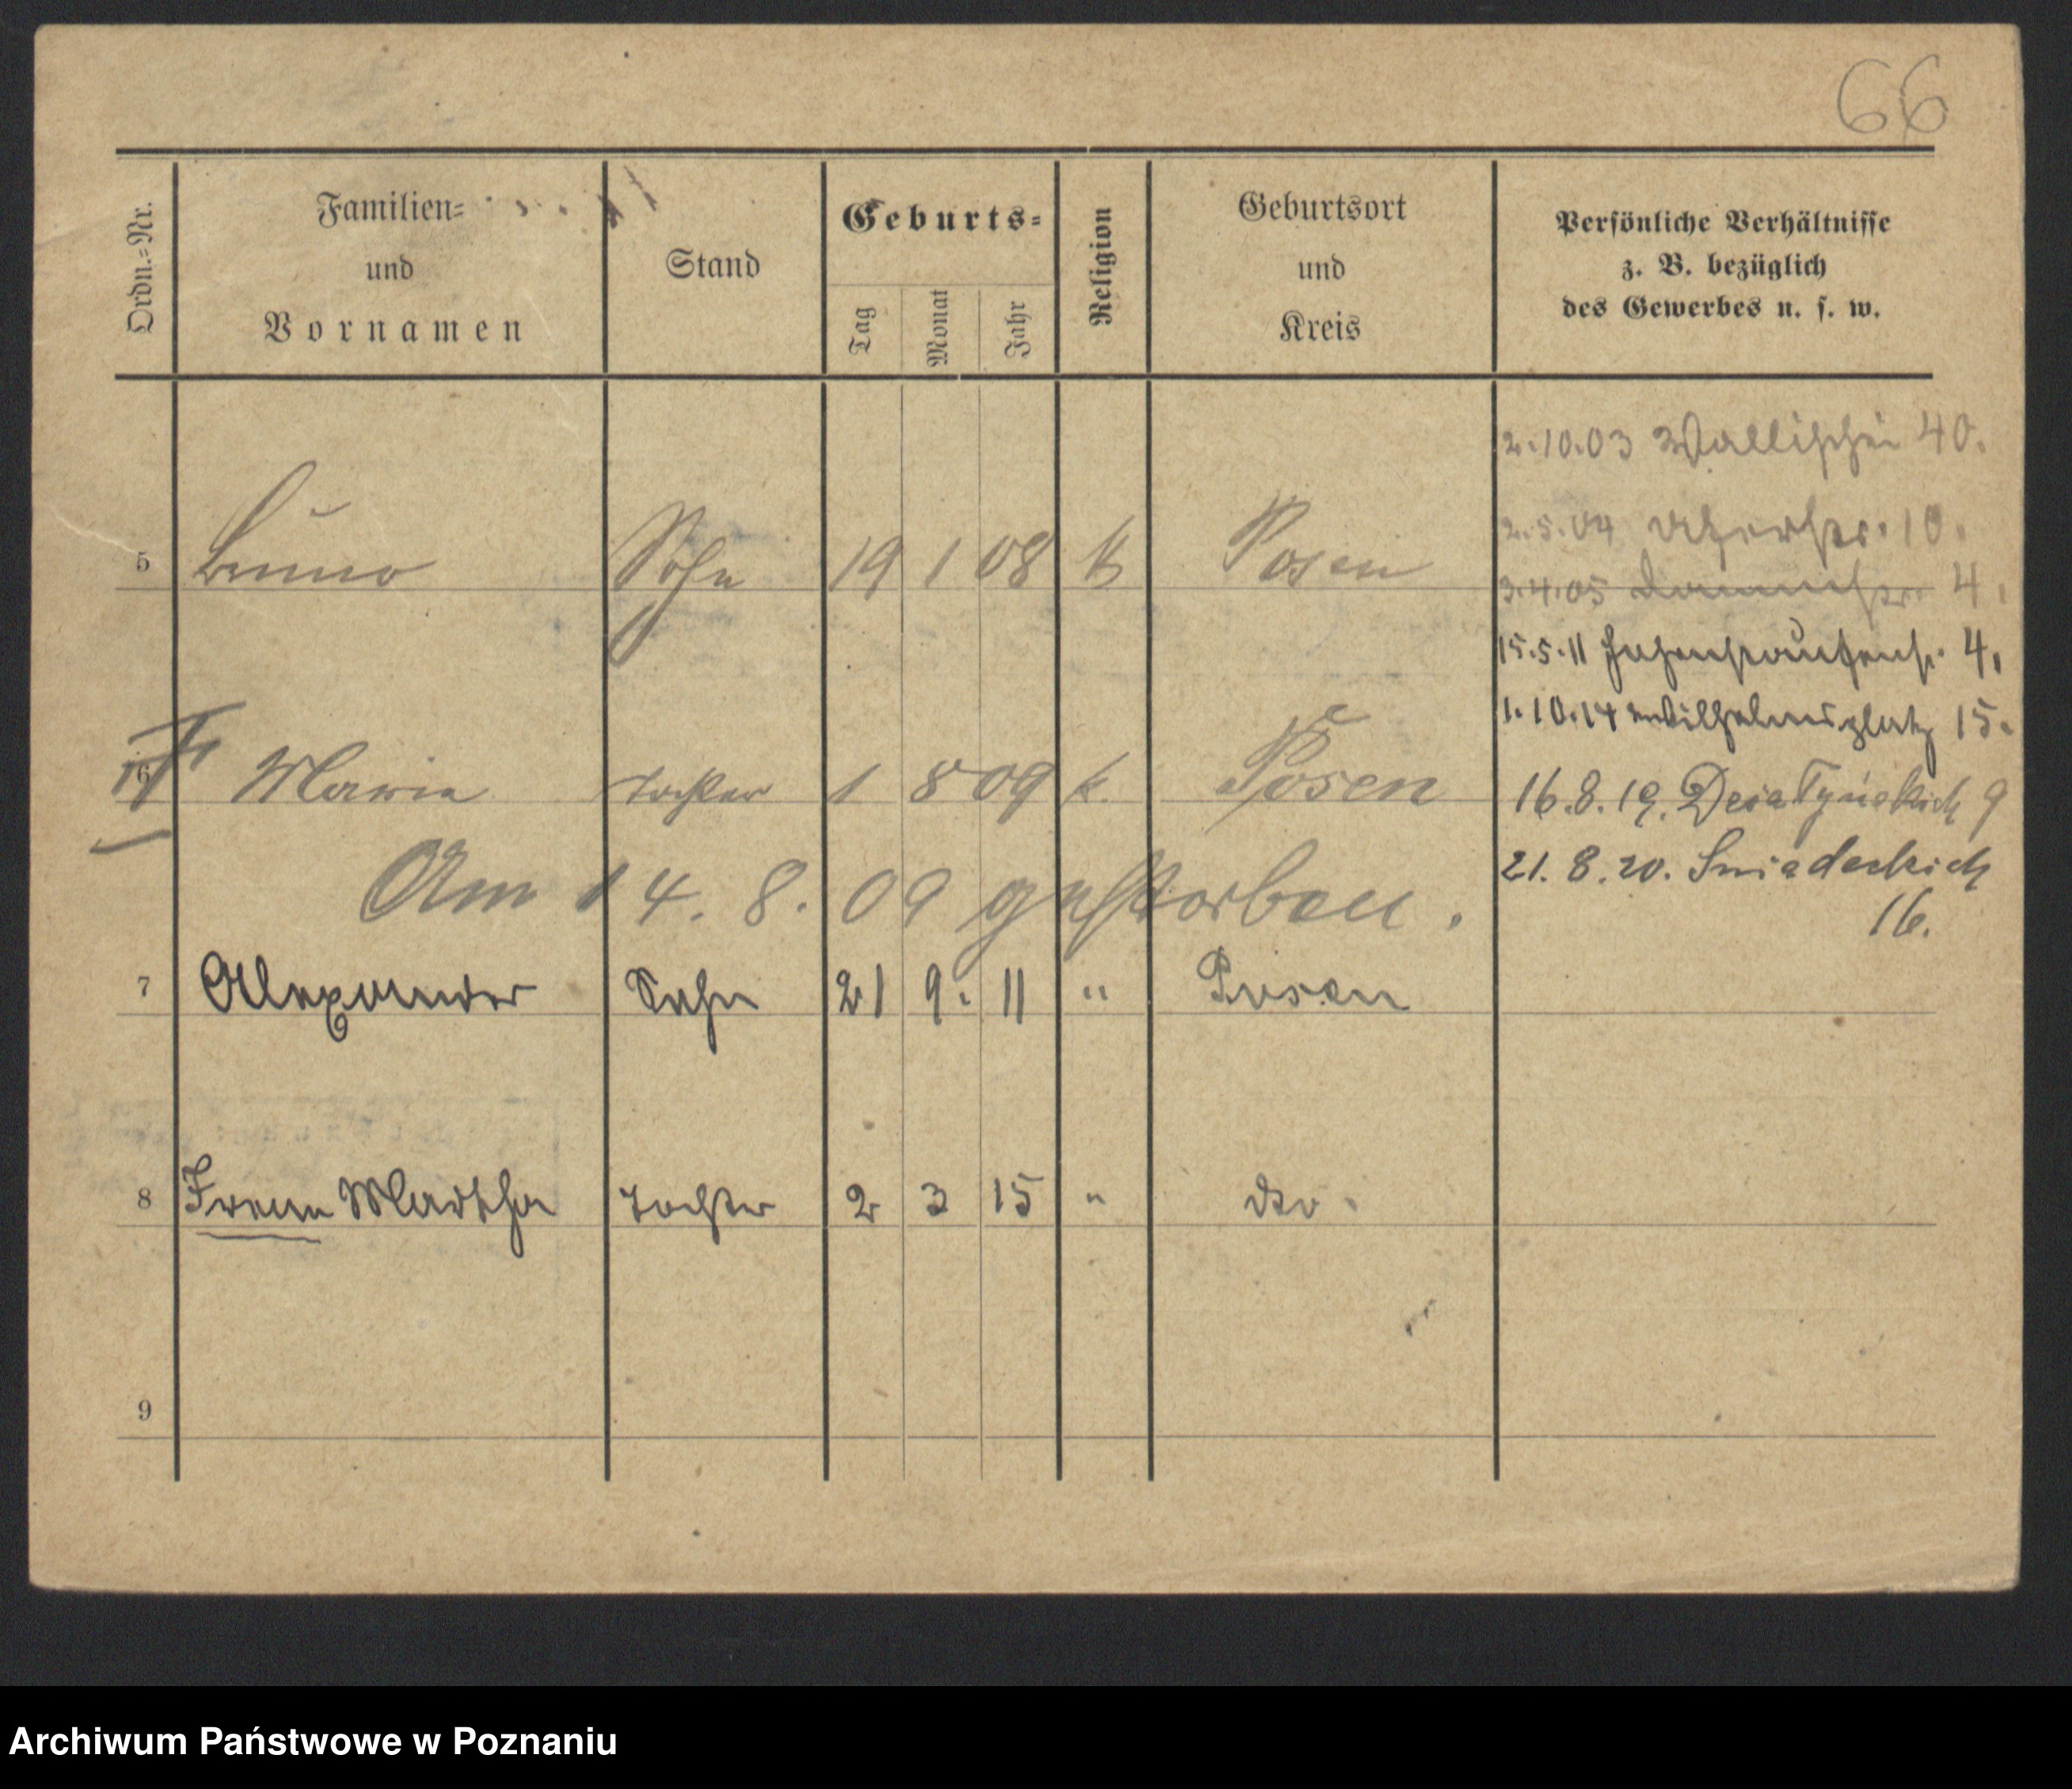 66
Ordn.-Nr.
Familien-
und
Vornamen
Stand
Geburts-
Tag
Monat
Jahr
Religion
Geburtsort
und
Kreis
Persönliche Verhältnisse
z. B. bezüglich
des Gewerbes u. s. w.
2.10.03 Wallischei 40.
2.5.04 10.
5 Bruno Sohn 19 1 08 k Posen
3.4.05 Dammstr. 4.
15.5.11 4.
1.10.14 Wilhelmsplatz 15.
6 Maria Tochter 1 8 09 k. Posen
16.8.19. Działyńskich 9
Am 14. 8. 09 gestorben.
21. 8. 20. Sniadeckich
16.
7 Alexander Sohn 21 9. 11 " Posen
8 Irene Martha Tochter 2 3 15 " dto.
9
Archiwum Państwowe w Poznaniu